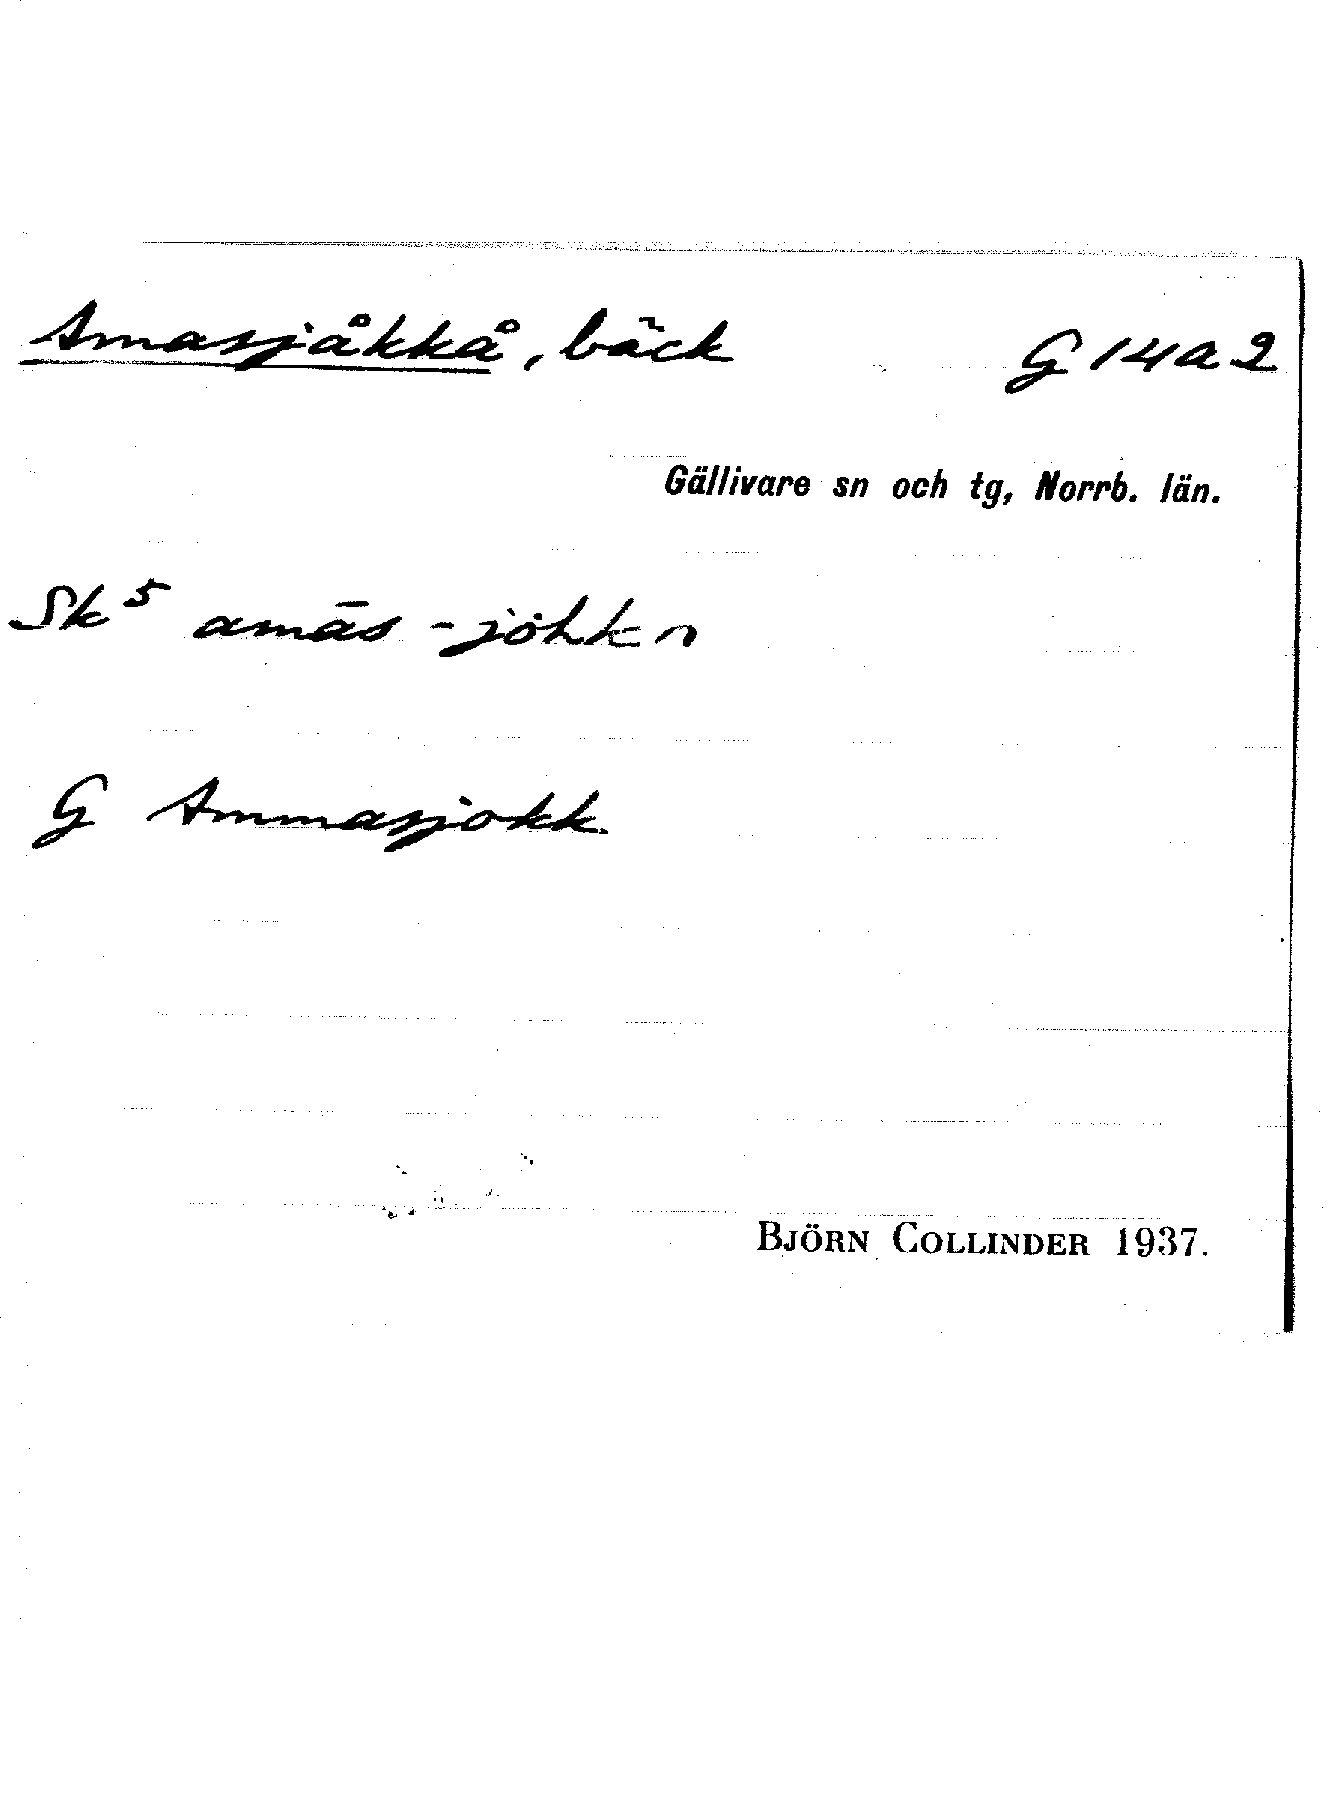 Amasjåkkå, bäck G 14a2
Gällivare sn och tg, Norrb. län.
Sk⁵ amās -
G Ammasjokk.
BJÖRN COLLINDER 1937.